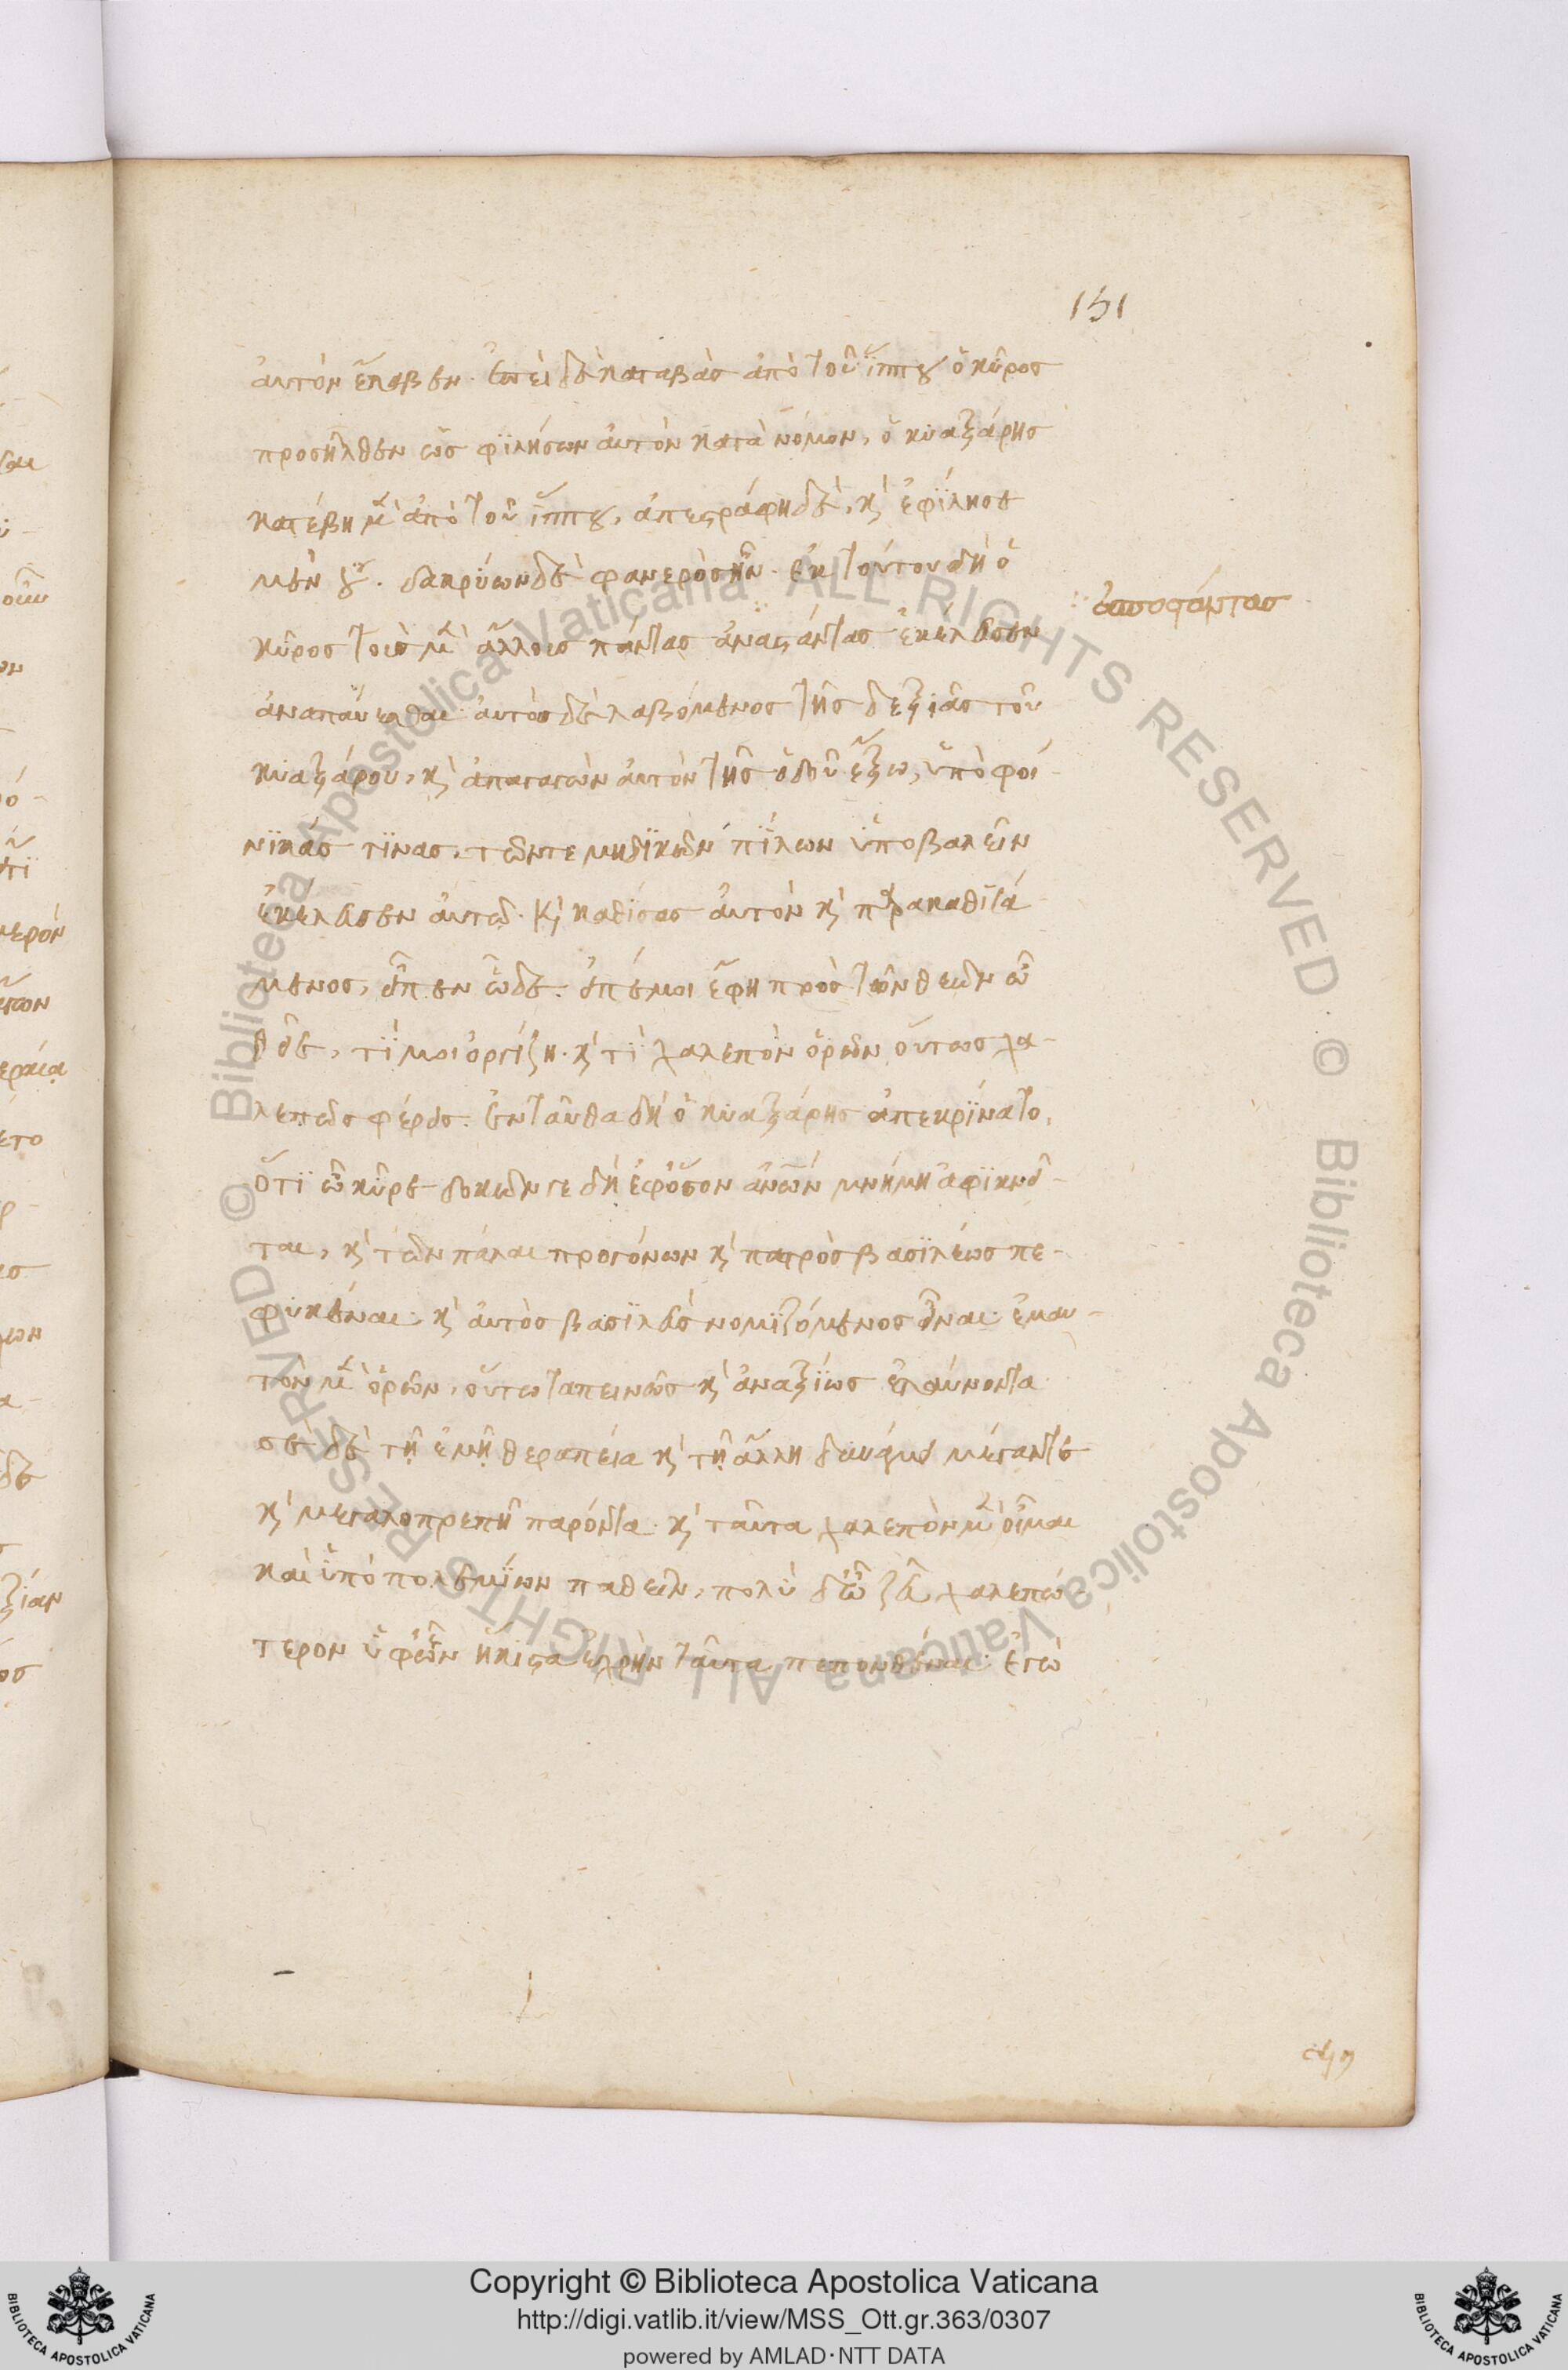 151
αὐτὸν ἔλαβεν. ἐπεὶ δὲ καταβὰς ἀπὸ τοῦ ἵππου ὁ κῦρος
προσῆλθεν ὡς φιλήσων αὐτὸν κατὰ νόμον, ὁ κυαξάρης
κατέβη μὲν ἀπὸ τοῦ ἵππου, ἀπεστράφη δὲ, καὶ ἐφίλησε
μὲν οὔ. δακρύων δὲ φανερὸς ἦν. ἐκ τούτου δὴ ὁ
ἀποστάντας
κῦρος τοὺς μὲν ἄλλους πάντας ἀναστάντας ἐκέλευσεν
ἀναπαύεσθαι. αὐτὸς δὲ λαβόμενος τῆς δεξιᾶς τοῦ
κυαξάρου, καὶ ἀπαγαγὼν αὐτὸν τῆς ὁδοῦ ἔξω, ὑπὸ φοί-
νικάς τινας, τῶν τε μηδικῶν πίλων ὑποβαλεῖν
ἐκέλευσεν αὐτῷ. καὶ καθίσας αὐτὸν καὶ παρακαθισά
μενος, εἶπεν ὧδε. εἰπέ μοι ἔφη πρὸς τῶν θεῶν ὦ
θεῖε, τί μοι ὀργίζῃ. καὶ τί χαλεπὸν ὁρῶν οὕτως χα-
λεπῶς φέρεις. ἐνταῦθα δὴ ὁ κυαξάρης ἀπεκρίνατο,
ὅτι ὦ κῦρε δοκῶν γε δὴ ἐφ' ὅσον ἀνθρώπων μνήμη ἀφικνεῖ-
ται, καὶ τῶν πάλαι προγόνων καὶ πατρὸς βασιλέως πε-
φυκέναι. καὶ αὐτὸς βασιλεὺς νομιζόμενος εἶναι. ἐμαυ-
τὸν μὲν ὁρῶν, οὕτω ταπεινῶς καὶ ἀναξίως ἐλαύνοντα
σὲ δὲ τῇ ἐμῇ θεραπεία καὶ τῇ ἄλλη δυνάμει μέγαν τε
καὶ μεγαλοπρεπῆ παρόντα. καὶ ταῦτα χαλεπὸν μὲν οἶμαι
καὶ ὑπὸ πολεμίων παθεῖν, πολὺ δ' ὦ ζεῦ χαλεπώ-
τερον ὑφ' ὧν ἥκιστα ἐχρῆν ταῦτα πεπονθέναι. ἐγὼ
Copyright © Biblioteca Apostolica Vaticana
http://digi.vatlib.it/view/MSS_Ott.gr.363/0307
powered by AMLAD·NTT DATA
BIBLIOTECA APOSTOLICA VATICANA
BIBLIOTECA APOSTOLICA VATICANA
© Biblioteca Apostolica Vaticana ALL RIGHTS RESERVED
© Biblioteca Apostolica Vaticana ALL RIGHTS RESERVED